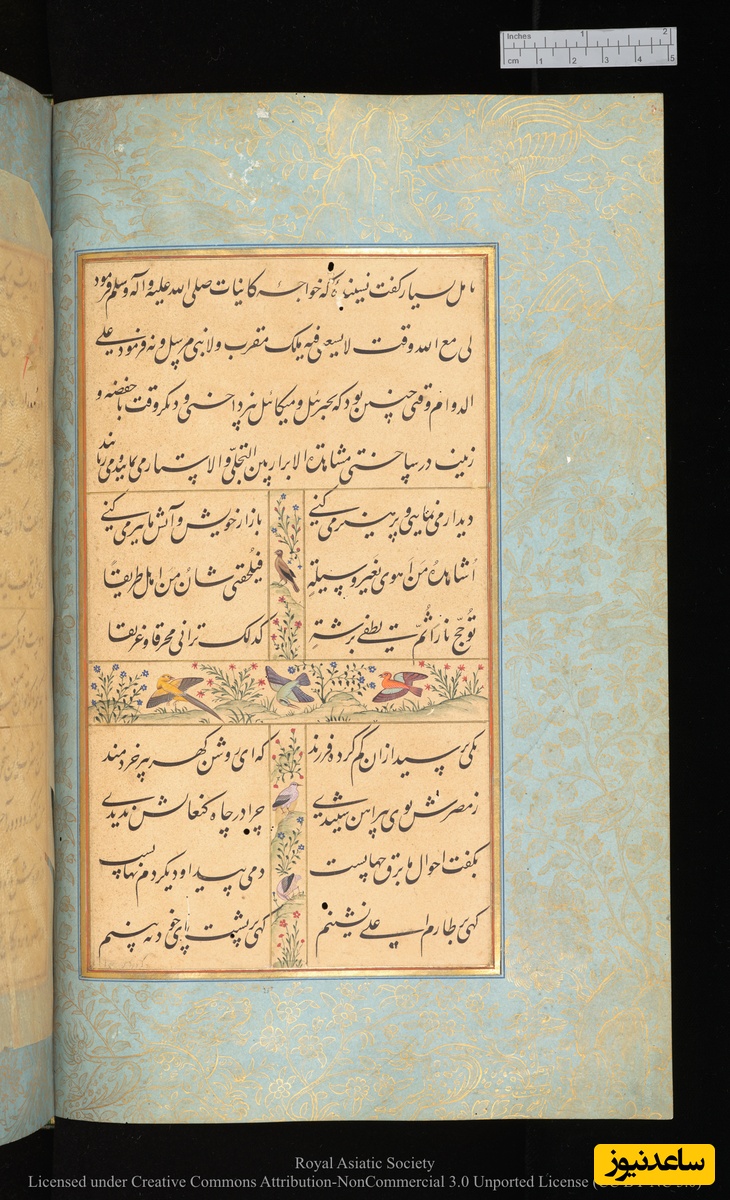 Inches 1 2
cm 1 2 3 4 5
تامل بسیار گفت نشنیده‌ای که خواجه کاینات صلی الله علیه و آله وسلم فرمود
لی مع الله وقت لا یسعنی فیه ملک مقرب ولا نبی مرسل و نه فرمود علی
الدوام وقتی چنین بود که بجبرئل و میکائل نپرداختی و دیگر وقت با حفصه و
زمینب درساختی مشاهدة الابرار بین التجلی والاستتار می نماید و می رباند
دیدار می نمایی و پرهیز می کنی بازار خویش و آتش ما تیز می کنی
أشاهد من اهوی بغیر وسیلة فیلحقنی شان من اهل طریقا
توجج نارا ثم یطفی برشة کذلک ترانی محرقا و غریقا
یکی پرسید از ان گم کرده فرزند که ای روشن گهر پیر خردمند
زمصرش بوی پیراهن شنیدی چرا در چاه کنعانش ندیدی
بگفت احوال ما برق جهانست دمی پیدا و دیگر دم نهانست
گهی بر طارم اعلی نشینم گهی بر پشت پای خود نه بینم
Royal Asiatic Society
Licensed under Creative Commons Attribution-NonCommercial 3.0 Unported License
ساعدنیوز